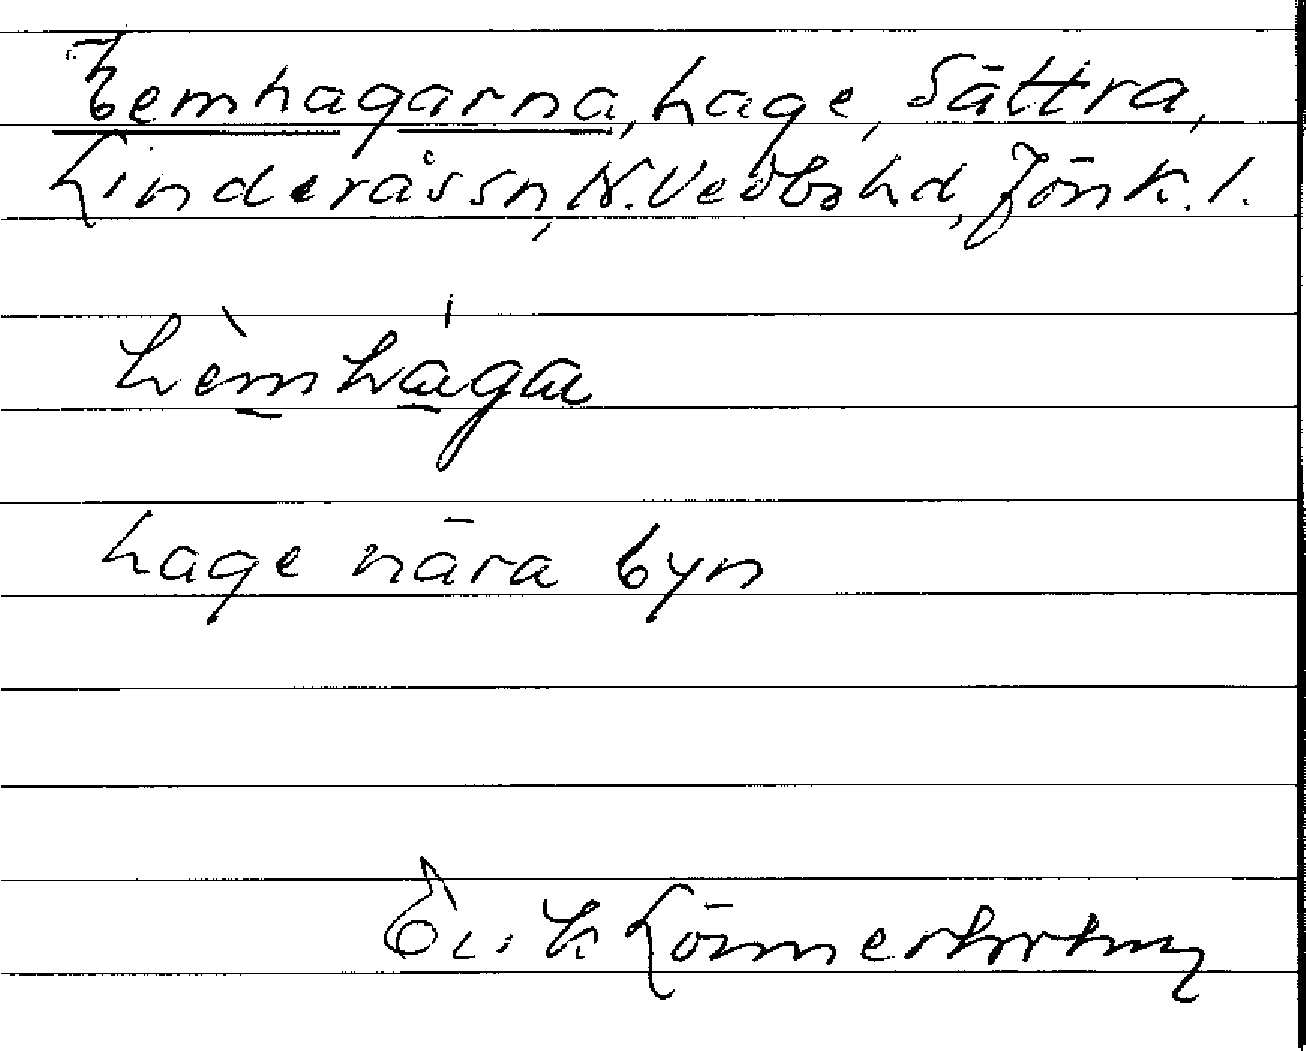 Hemhagarna, hage, Sättra,
Linderås sn, N. Vedbo hd, Jönk. l.
hèmhága
hage nära byn
Erik